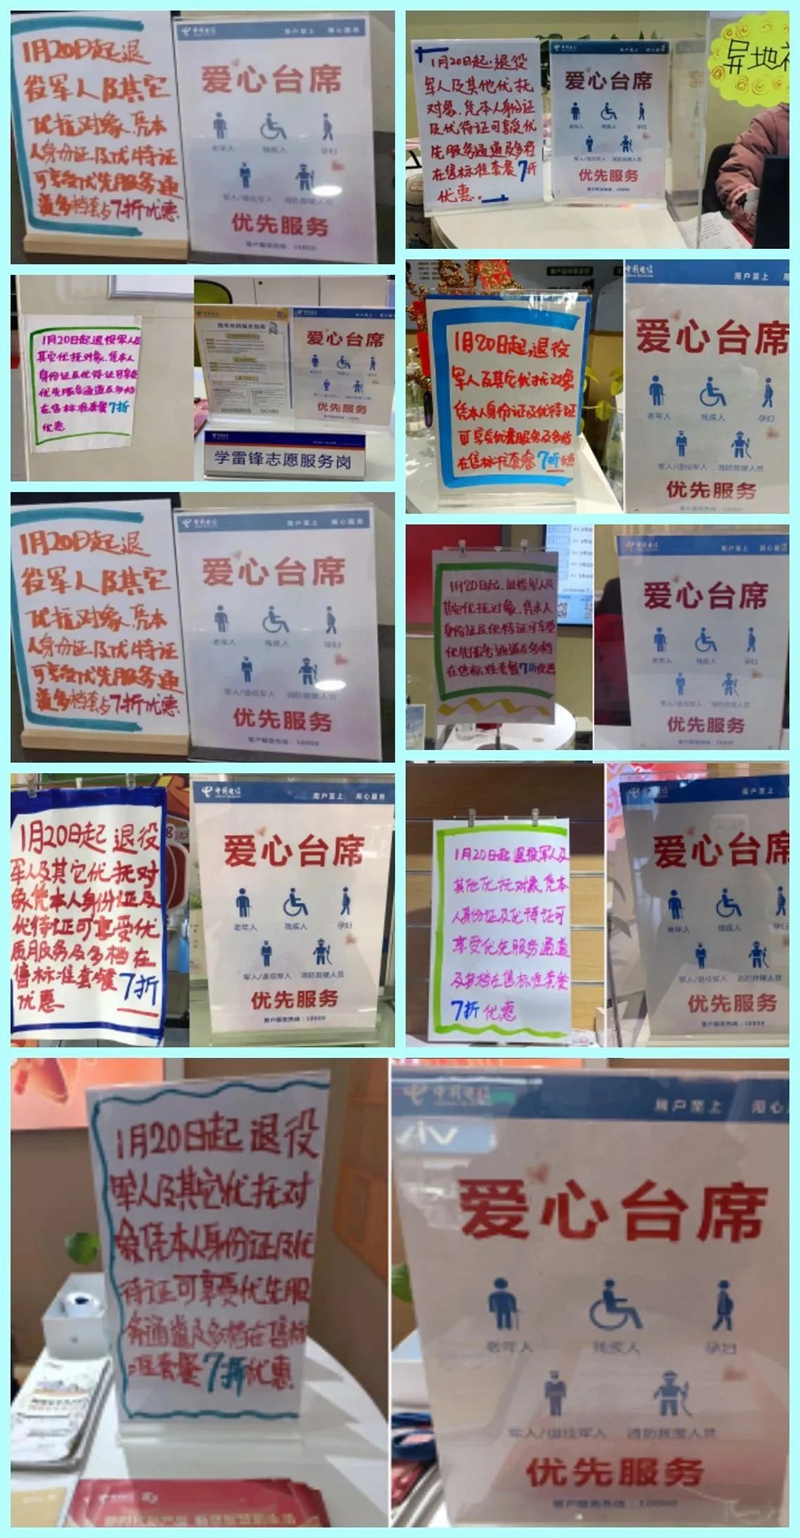 1月20日起退
役军人及其它
优抚对象,凭本
人身份证及优待证
可享受优先服务通
道多档套餐7折优惠
中国电信
用户至上 用心服务
爱心台席
老年人 残疾人 孕妇
军人/退役军人 消防救援人员
优先服务
客户服务热线:10000
1月20日起,退役
军人及其他优抚
对象,凭本人身份证
及优待证可享受优
先服务通道及多档
在售标准套餐7折
优惠.
中国电信
爱心台席
老年人 残疾人 孕妇
军人/退役军人 消防救援人员
优先服务
异地
1月20日起,退役军人及
其它优抚对象,凭本人
身份证及优待证可享受
优先服务通道及多档
在售标准套餐7折
优惠
爱心台席
优先服务
学雷锋志愿服务岗
1月20日起,退役
军人及其它优抚对象
凭本人身份证及优待证
可享受优先服务及多档
在售标准套餐7折优惠
中国电信
用户至上
爱心台席
老年人 残疾人 孕妇
军人/退役军人 消防救援人员
优先服务
客户服务热线:10000
1月20日起退
役军人及其它
优抚对象,凭本
人身份证及优待证
可享受优先服务通
道多档套餐7折优惠
中国电信
用户至上 用心服务
爱心台席
老年人 残疾人 孕妇
军人/退役军人 消防救援人员
优先服务
客户服务热线:10000
1月20日起,退役军人及
其它优抚对象,凭本人
身份证及优待证可享受
优先服务通道及多档
在售标准套餐7折优惠
中国电信
用户至上 用心服务
爱心台席
老年人 残疾人 孕妇
军人/退役军人 消防救援人员
优先服务
客户服务热线:10000
1月20日起 退役
军人及其它优抚对
象凭本人身份证及
优待证可享受优
质服务及多档在
售标准套餐7折
优惠
中国电信
用户至上 用心服务
爱心台席
老年人 残疾人 孕妇
军人/退役军人 消防救援人员
优先服务
客户服务热线:10000
1月20日起退役军人及
其他优抚对象凭本
人身份证及优待证可
享受优先服务通道
及多档在售标准套餐
7折优惠
中国电信
用户至上
爱心台席
老年人 残疾人 孕妇
军人/退役军人 消防救援人员
优先服务
客户服务热线:10000
1月20日起退役
军人及其它优抚对
象凭本人身份证及优
待证可享受优先服
务通道及多档在售标
准套餐7折优惠
中国电信
用户至上 用心服
爱心台席
老年人 残疾人 孕妇
军人/退役军人 消防救援人员
优先服务
客户服务热线:10000